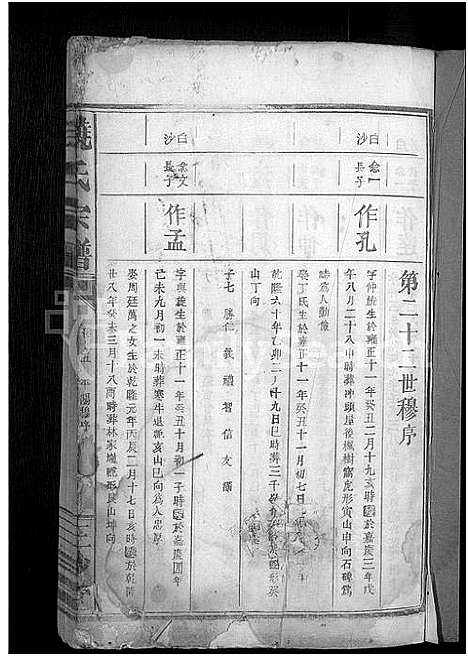 第二十二世穆序
白沙
念一長子
作孔
字仲旋生於雍正十一年癸丑二月十九亥時歿於嘉慶三年戊
年八月二十八申時葬冲頭屋後楓樹窩虎形寅山申向石碑為
誌為人勤儉
娶丁氏生於雍正十一年癸丑十一月初七日
乾隆六十年乙卯二月十九日巳時葬三千
山丁向
子七 勝仁 義 禮 智 信 友
白沙
念文長子
作孟
字與旋生於雍正十一年癸丑十月初一子時歿於嘉慶四年
己未九月初一未時葬寒牛退軛亥山巳向為人忠厚
娶周廷萬之女生於乾隆元年丙辰二月十七日亥時歿於乾隆
廿八年癸未三月十八酉時葬林家壠蛇形艮山坤向
饒氏宗譜
穆序